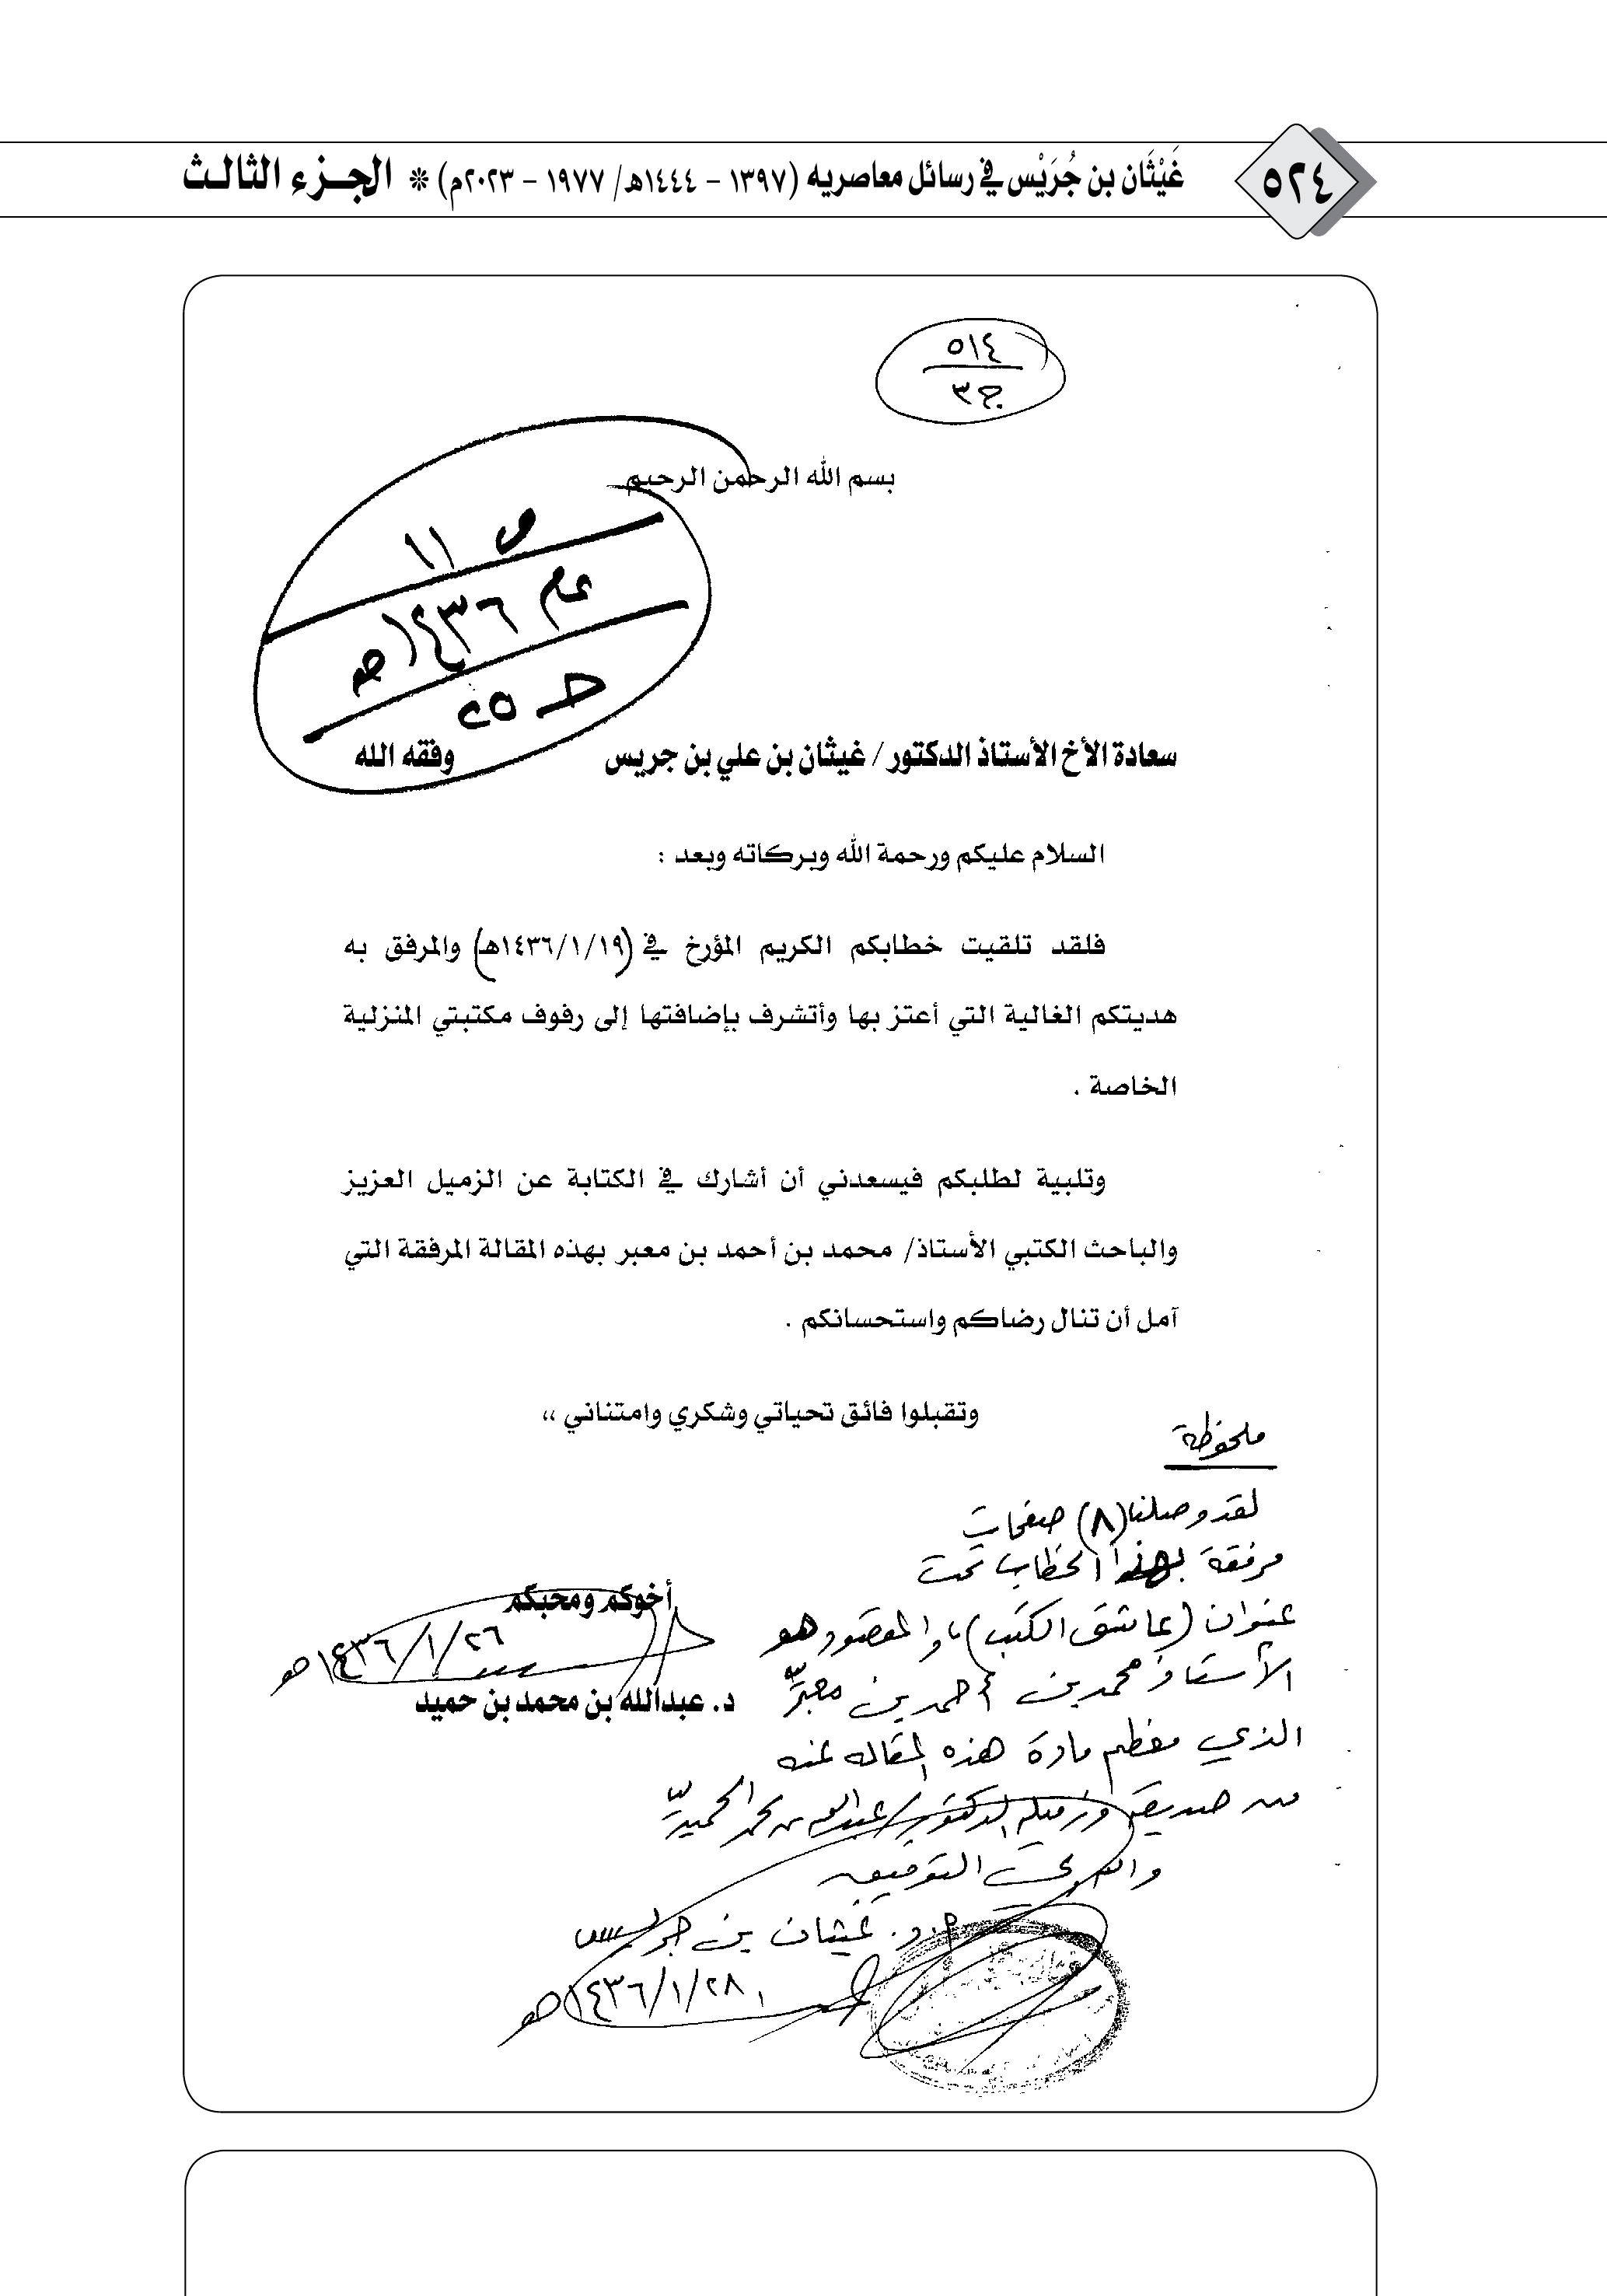 ٥٢٤
غَيْثَان بن جُرَيْس في رسائل معاصريه (١٣٩٧ - ١٤٤٤هـ/ ١٩٧٧ - ٢٠٢٣م) * الجـزء الثالـث
٥١٤
ج٣
بسم الله الرحمن الرحيم
ص ١١
عام ١٤٣٦هـ
حـ ٢٥
سعادة الأخ الأستاذ الدكتور / غيثان بن علي بن جريس وفقه الله
السلام عليكم ورحمة الله وبركاته وبعد :
فلقد تلقيت خطابكم الكريم المؤرخ في (١٤٣٦/١/١٩هـ) والمرفق به
هديتكم الغالية التي أعتز بها وأتشرف بإضافتها إلى رفوف مكتبتي المنزلية
الخاصة .
وتلبية لطلبكم فيسعدني أن أشارك في الكتابة عن الزميل العزيز
والباحث الكتبي الأستاذ/ محمد بن أحمد بن معبر بهذه المقالة المرفقة التي
آمل أن تنال رضاكم واستحسانكم .
وتقبلوا فائق تحياتي وشكري وامتناني ،،
أخوكم ومحبكم
١٤٣٦/١/٢٦هـ
د. عبدالله بن محمد بن حميد
ملحوظة
لقد وصلنا (٨) صفحات
مرفقة بهذا الخطاب تحت
عنوان (عاشق الكتب)، والمقصود هو
الأستاذ محمد بن أحمد بن معبّر
الذي معظم مادة هذه المقاله عنه
من صديقه وزميله الدكتور/ عبدالله بن محمد الحميد
والله ولي التوفيق
أ.د. غيثان بن جريس
١٤٣٦/١/٢٨هـ